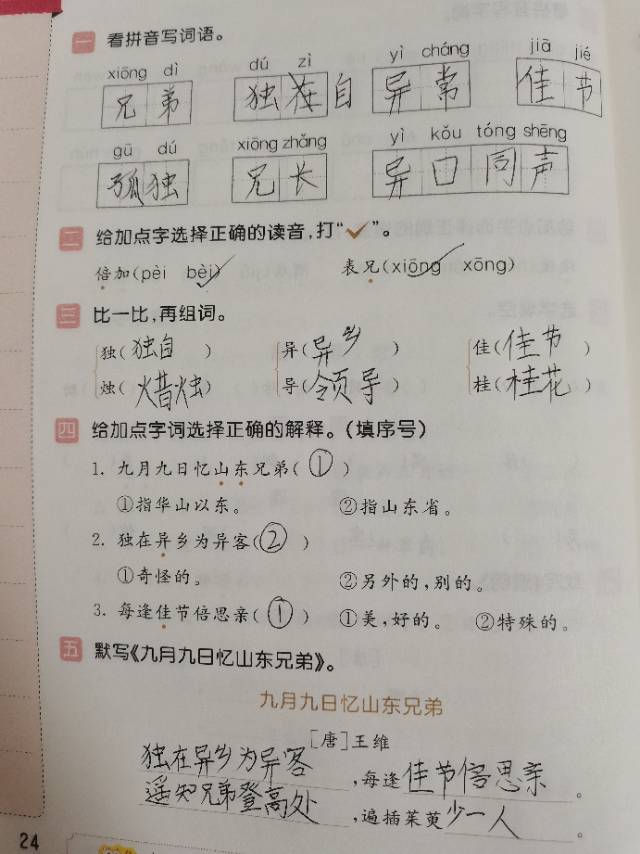 一 看拼音写词语。
xiōng dì dú zì yì cháng jiā jié
兄弟 独自 异常 佳节
gū dú xiōng zhǎng yì kǒu tóng shēng
孤独 兄长 异口同声
二 给加点字选择正确的读音,打“✓”。
倍加(pèi bèi✓) 表兄(xiōng✓ xōng)
三 比一比,再组词。
独(独自) 异(异乡) 佳(佳节)
烛(蜡烛) 导(领导) 桂(桂花)
四 给加点字词选择正确的解释。(填序号)
1. 九月九日忆山东兄弟(①)
①指华山以东。 ②指山东省。
2. 独在异乡为异客(②)
①奇怪的。 ②另外的,别的。
3. 每逢佳节倍思亲(①) ①美,好的。 ②特殊的。
五 默写《九月九日忆山东兄弟》。
九月九日忆山东兄弟
[唐]王维
独在异乡为异客,每逢佳节倍思亲。
遥知兄弟登高处,遍插茱萸少一人。
24